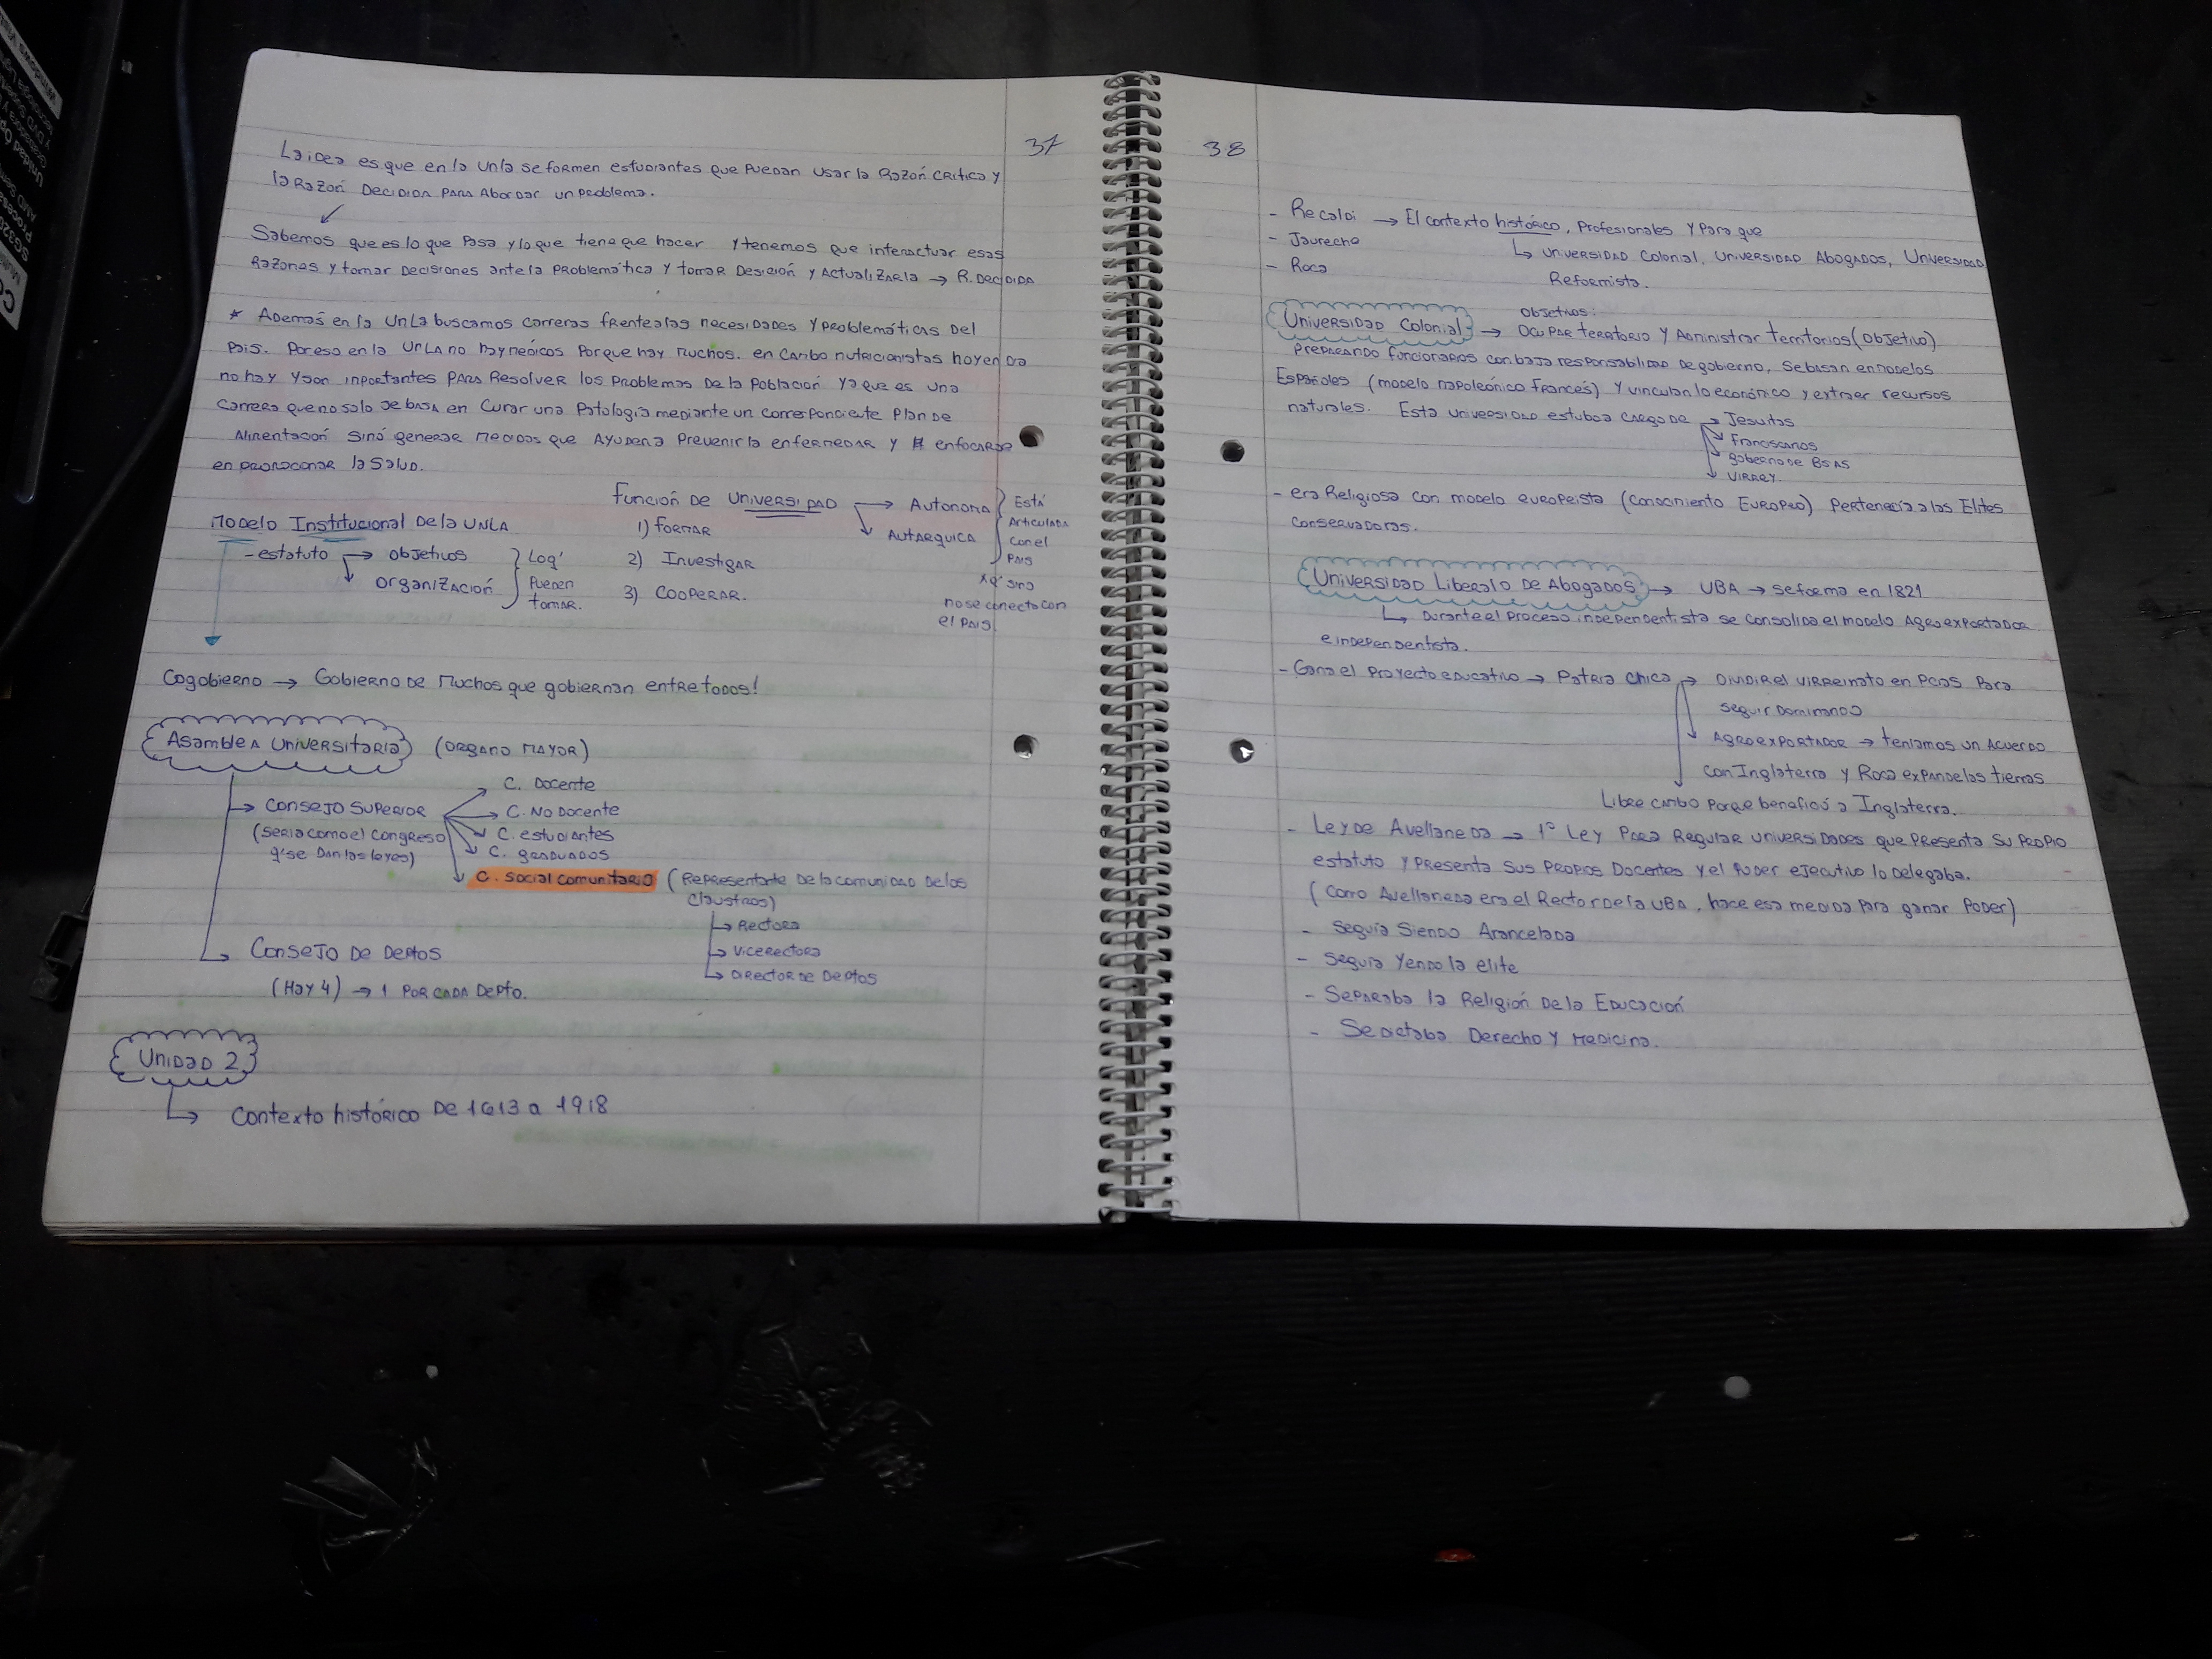 37
La idea es que en la Unla se formen estudiantes que puedan usar la Razón crítica y
la Razón Decidida para Abordar un problema.
Sabemos que es lo que pasa y lo que tiene que hacer y tenemos que interactuar esas
Razones y tomar Decisiones ante la Problemática y tomar Desición y Actualizarla → R. Decidida
* Ademas en la Unla buscamos carreras frente a las necesidades y problemáticas del
Pais. Por eso en la UNLa no hay médicos Porque hay muchos. en cambio nutricionistas hoy en dia
no hay y son inportantes para Resolver los Problemas De la Población ya que es una
carrera que no solo se basa en curar una Patología mediante un correspondiente Plan de
Alimentación sinó generar medidas que Ayuden a Prevenir la enfermedad y enfocarse
en promocionar la salud.
Función de Universidad → Autonoma
→ Autarquica
Está
Articulada
con el
Pais
xq' sino
no se conecta con
el Pais
1) Formar
2) Investigar
3) Cooperar.
Modelo Institucional De la UNLA
- estatuto → objetivos
→ organización
Loq'
Pueden
tomar.
Cogobierno → Gobierno de muchos que gobiernan entre todos!
Asamblea Universitaria (organo mayor)
→ Consejo Superior
(seria como el congreso
q' se dan las leyes)
C. Docente
C. No Docente
C. estudiantes
C. graduados
C. Social Comunitario (Representante de la comunidad de los
Claustros)
→ Rectora
→ Vicerectora
→ Director de Deptos
→ Consejo de Deptos
(Hay 4) → 1 por cada Depto.
Unidad 2
→ Contexto histórico De 1613 a 1918
38
- Recaldi → El contexto histórico, Profesionales y Para que
- Jaureche
- Roca
→ Universidad Colonial, Universidad Abogados, Universidad
Reformista.
Objetivos:
Universidad Colonial → Ocupar territorio y Administrar territorios (objetivo)
Preparando funcionarios con baja responsabilidad de gobierno, se basan en modelos
Españoles (modelo napoleónico francés) y vinculan lo económico y extraer recursos
naturales. Esta universidad estubo a cargo de → Jesuitas
→ Franciscanos
→ gobierno de BsAs
→ Virrey.
- era Religiosa con modelo europeista (conocimiento Europeo) Pertenecía a las Elites
conservadoras.
Universidad Liberal o De Abogados → UBA → se forma en 1821
→ Durante el proceso independentista se consolida el modelo Agroexportador
e independentista.
- Gana el Proyecto educativo → Patria Chica → Dividir el virreinato en Pcias Para
seguir dominando
→ Agroexportador → teniamos un Acuerdo
con Inglaterra y Roca expande las tierras
→ Libre cambio porque benefició a Inglaterra.
- Ley de Avellaneda → 1° Ley Para Regular universidades que presenta su propio
estatuto y presenta sus propios Docentes y el Poder ejecutivo lo delegaba.
(Como Avellaneda era el Rector de la UBA, hace esa medida para ganar Poder)
- Seguía siendo Arancelada
- Seguía yendo la elite
- Separaba la Religión de la Educación
- Se dictaba Derecho y Medicina.